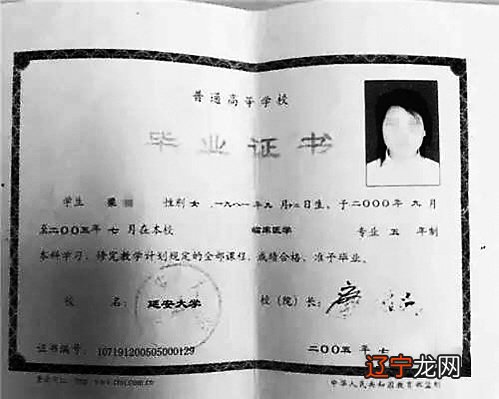 普通高等学校
毕业证书
学生 性别 女 ,一九八一年 九 月 日生, 于二〇〇〇年 九 月
至二〇〇五年 七 月在本校 临床医学 专业 五 年制
本科学习, 修完教学计划规定的全部课程, 成绩合格, 准予毕业。
校 名: 延安大学 校(院)长:
证书编号: 107191200505000129 二〇〇五年 七
中华人民共和国教育部监制
辽宁龙网